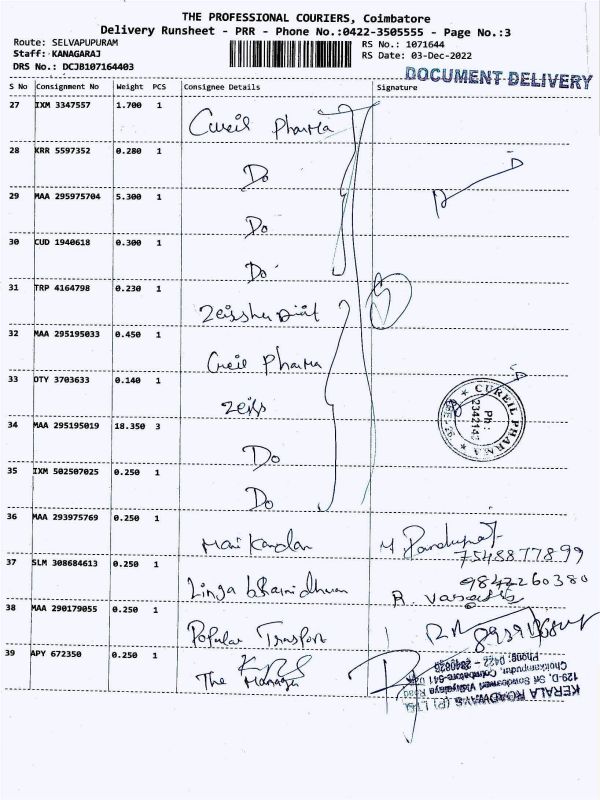 THE PROFESSIONAL COURIERS, Coimbatore
Delivery Runsheet - PRR - Phone No.:0422-3505555 - Page No.:3
Route: SELVAPUPURAM
RS No.: 1071644
Staff: KANAGARAJ
RS Date: 03-Dec-2022
DRS No.: DCJB107164403
DOCUMENT DELIVERY
S No Consignment No Weight PCS Consignee Details Signature
27 IXM 3347557 1.700 1 Cureil Pharma
28 KRR 5597352 0.280 1 Do
29 MAA 295975704 5.300 1 Do
30 CUD 1940618 0.300 1 Do
31 TRP 4164798 0.230 1
32 MAA 295195033 0.450 1 Cureil Pharma
33 DTY 3703633 0.140 1 Zeiss
CUREIL PHARMA
Ph:
34 MAA 295195019 18.350 3 Do
35 IXM 502507025 0.250 1 Do
36 MAA 293975769 0.250 1 Mani Kandan
7548877899
37 SLM 308684613 0.250 1 Linga
9842260380
38 MAA 290179055 0.250 1 Popular Transport
39 APY 672350 0.250 1 KRS
The Manager
KERALA ROADWAYS (P) LTD